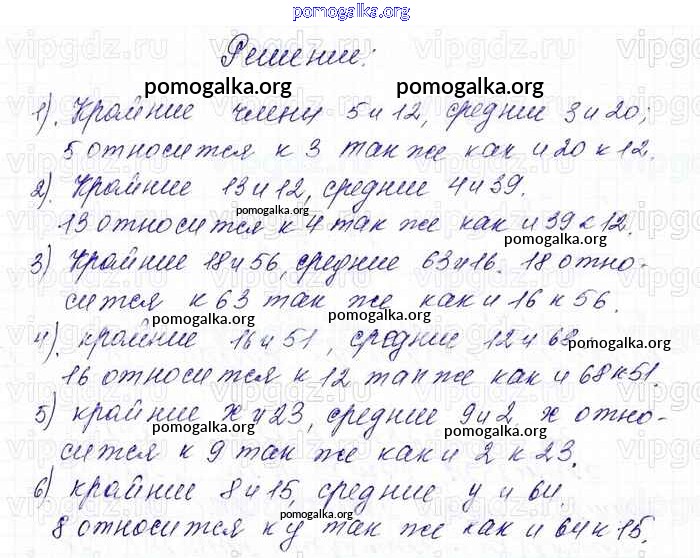 pomogalka.org
Решение:
pomogalka.org pomogalka.org
1). Крайние члены 5 и 12, средние 3 и 20;
5 относится к 3 так же как и 20 к 12.
2). Крайние 13 и 12, средние 4 и 39.
pomogalka.org
13 относится к 4 так же как и 39 к 12.
pomogalka.org
3) Крайние 18 и 56, средние 63 и 16. 18 отно-
сится к 63 так же как и 16 к 56.
pomogalka.org pomogalka.org
4). крайние 16 и 51, средние 12 и 68
pomogalka.org
16 относится к 12 так же как и 68 к 51.
5) крайние х и 23, средние 9 и 2 х отно-
pomogalka.org pomogalka.org
сится к 9 так же как и 2 к 23.
6) крайние 8 и 15, средние у и 64.
pomogalka.org
8 относится к у так же как и 64 к 15.
vipgdz.ru